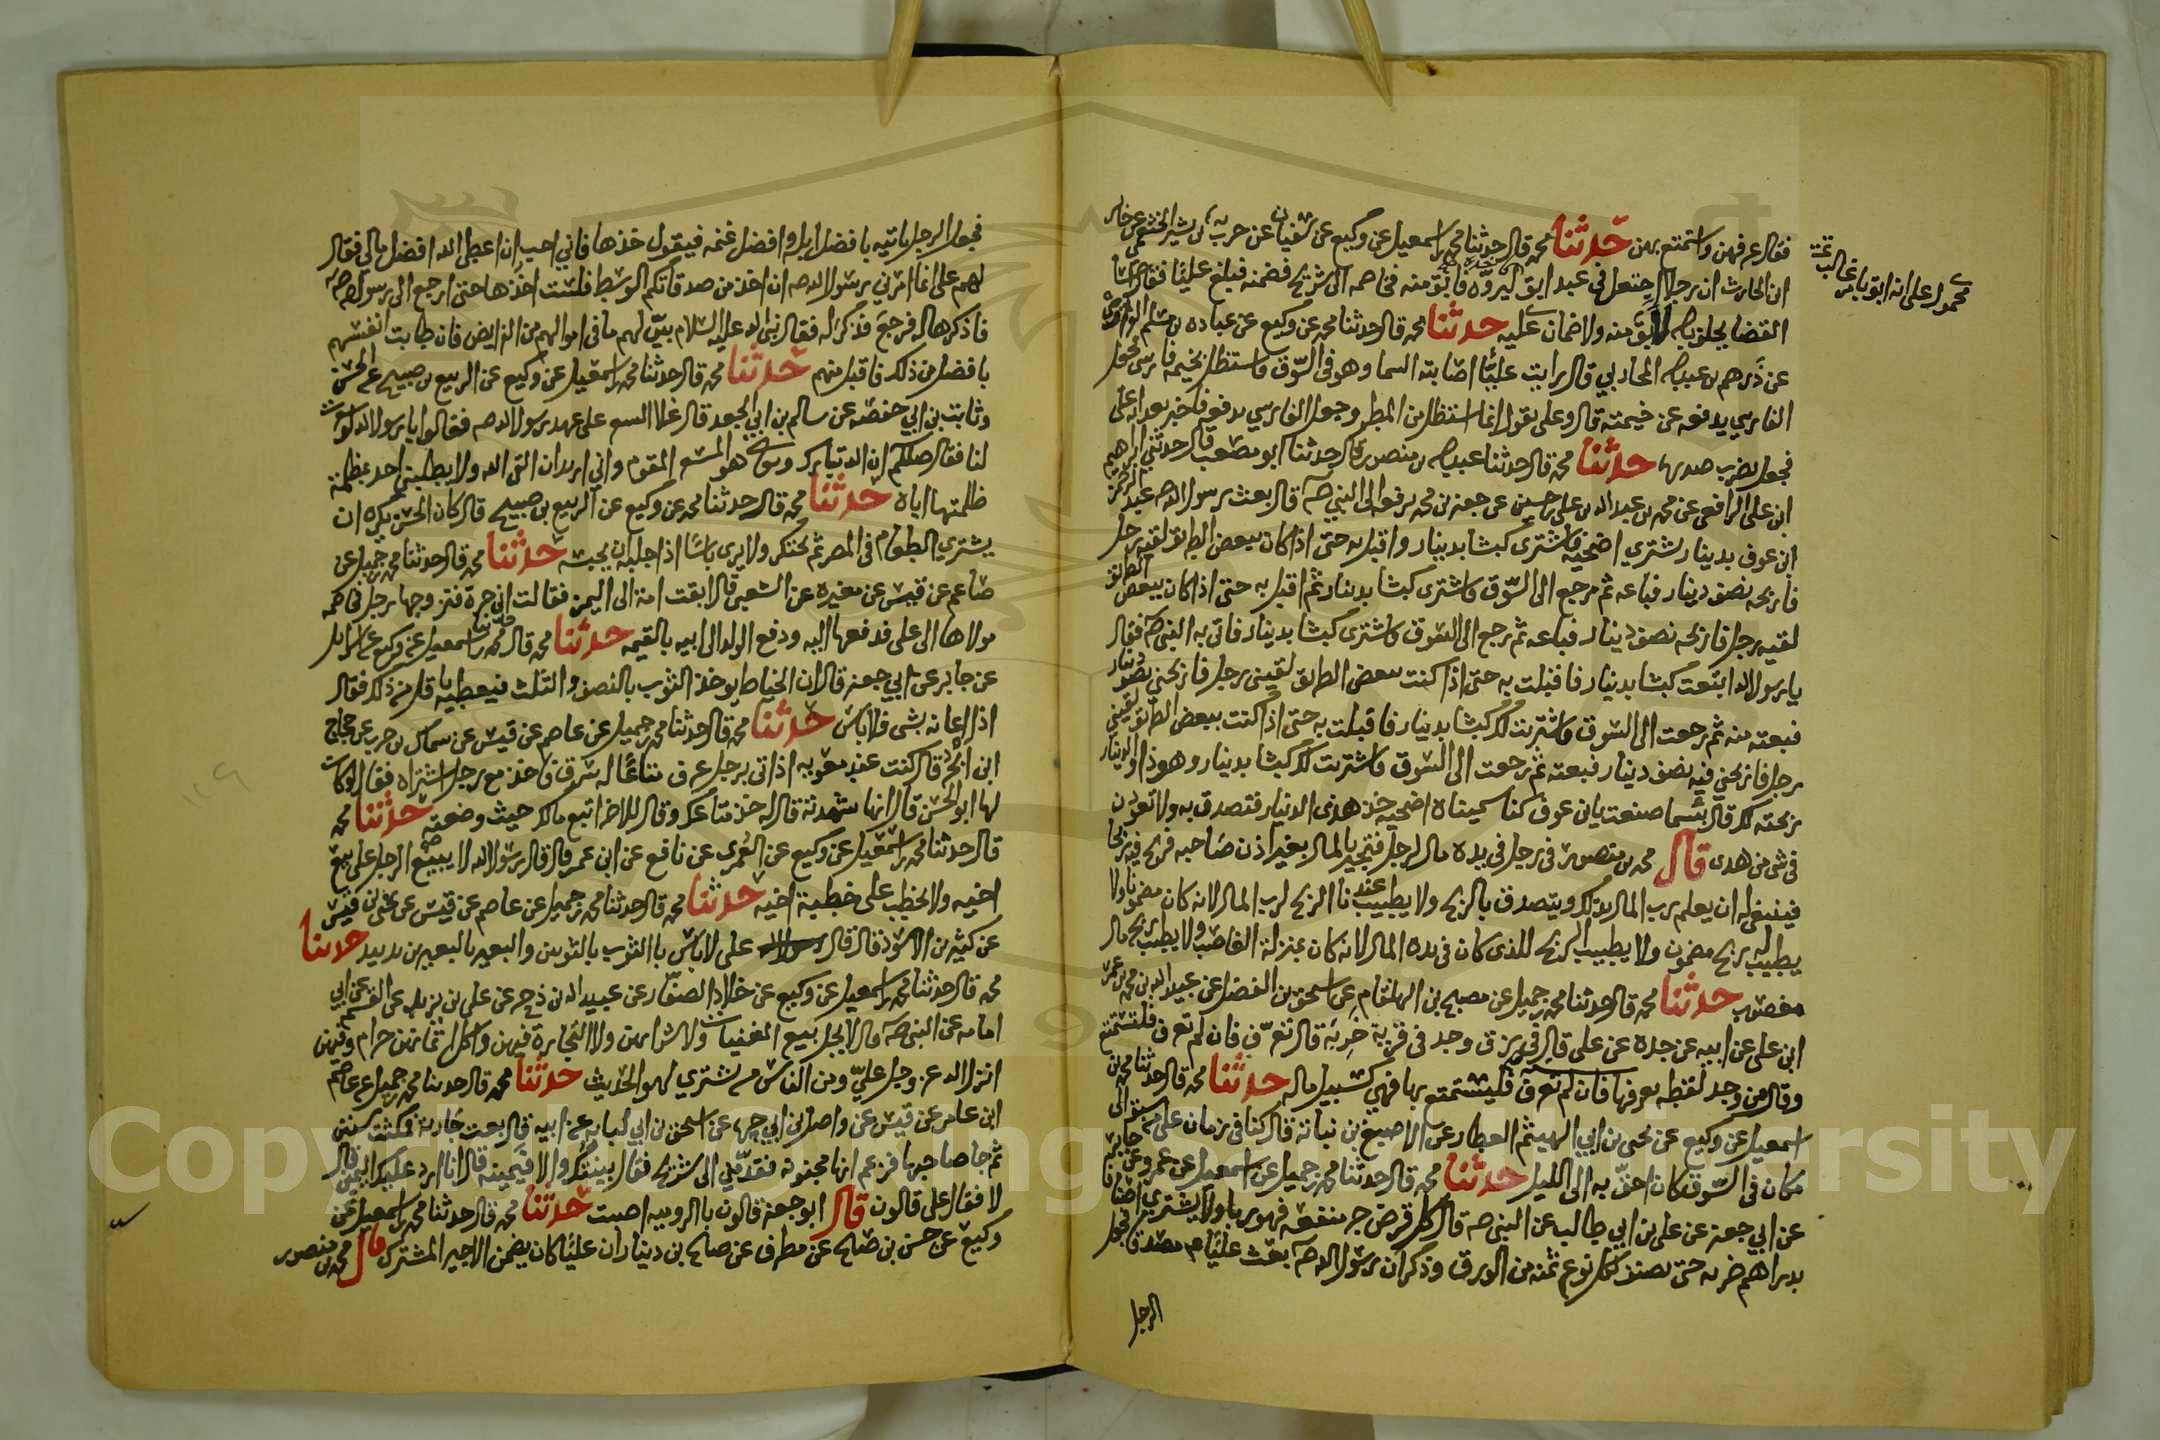 فقال عرفهن واستمتع بهن حدثنا محمد قال حدثنا محمد بن اسمعيل عن وكيع عن سفيان عن حرب بن بشير الخثعمي عن خاله
ابن الحارث ان رجلا اجتعل في عبد ابق ليروه فابق منه فخاصمه الى شريح فضمنه فبلغ عليا فقال اسا
القضا يحلف بالله لابق منه ولا ضمان عليه حدثنا محمد قال حدثنا محمد عن وكيع عن عباده بن مسلم الفزاري
عن درهم بن عبد الله المحاربي قال رايت عليا اصابته السما وهو في السوق فاستظل بخيمة فارسي فجعل
الفارسي يدفعه عن خيمته قال وعلي يقول انما استظل من المطر وجعل الفارسي يدفعه فاخبر بعد انه علي
فجعل يضرب صدره حدثنا محمد قال حدثنا عبد الله بن منصور قال حدثنا ابو مصعب قال حدثني ابراهيم
ابن علي الرافعي عن محمد بن عبد الله بن علي بن حسين عن جعفر بن محمد يرفعه الى النبي صه قال بعث رسول الله صه عبد الرحمن
ابن عوف بدينار يشتري اضحيه فاشترى كبشا بدينار واقبل به حتى اذا كان ببعض الطريق لقيه رجل
فاربحه نصف دينار فباعه ثم رجع الى السوق فاشترى كبشا بدينار ثم اقبل به حتى اذا كان ببعض الطريق
لقيه رجل فاربحه نصف دينار فباعه ثم رجع الى السوق فاشترى كبشا بدينار فاتى به النبي صه فقال
يا رسول الله ابتعت كبشا بدينار فاقبلت به حتى اذا كنت ببعض الطريق لقيني رجل فاربحني نصف دينار
فبعته منه ثم رجعت الى السوق فاشتريت لك كبشا بدينار فاقبلت به حتى اذا كنت ببعض الطريق لقيني
رجل فاربحني فيه نصف دينار فبعته ثم رجعت الى السوق فاشتريت لك كبشا بدينار وهوذا والدينار
ربحته لك قال بئسما صنعت يابن عوف كنا سميناه اضحيه خذ هذي الدنيار فتصدق به ولا تعودن
في شي من هذى قال محمد بن منصور في رجل في يده مال لرجل فيتجر بالمال بغير اذن صاحبه فربح فيه ربحا
فينبغي له ان يعلم رب المال بذلك ويتصدق بالربح ولا يطيب عندنا الربح لرب المال لانه كان مضمونا ولا
يطيب له ربح مضمون ولا يطيب الربح للذي كان في يده المال لانه كان بمنزلة الغاصب ولا يطيب ربح مال
مغصوب حدثنا محمد قال حدثنا محمد بن جميل عن مصبح بن الهلقام عن اسحق بن الفضل عن عبيد الله بن محمد بن عمر
ابن علي عن ابيه عن جده عن علي قال في ورق وجد في قرية خربة قال تعرف فان لم تعرف فلتستمتع
وقال من وجد لقطه يعرفها فان لم تعرف فليستمتع بها فهي كسبيل ماله حدثنا محمد قال حدثنا محمد بن
اسمعيل عن وكيع عن يحيى بن ابي الهيثم العطار عن الاصبغ بن نباتة قال كنا في زمان علي من سبق الى
مكان في السوق كان احق به الى الليل حدثنا محمد قال حدثنا محمد بن جميل عن اسمعيل عن عمرو عن جابر
عن ابي جعفر عن علي بن ابي طالب عن النبي صه قال كل قرض جر منفعه فهو ربا ولا يشتري اضافا
بدراهم ضربه حتى يصنف كل نوع ثمنه من الورق وذكر ان رسول الله صه بعث عليا مصدقا فجعل
الرجل
محمول على انه ابق بامر غالب تمت
فجعل الرجل ياتيه بافضل ابله وافضل غنمه فيقول خذها فاني احب ان اعطي الله افضل مالي فقال
لهم علي انما امرني رسول الله صه ان اخذ من صدقاتكم الوسط فلست اخذها حتى ارجع الى رسول الله صه
فاذكرها له فرجع فذكر له فقال نبي الله عليه السلام بين لهم ما في اموالهم من الفرايض فان طابت انفسهم
بافضل من ذلك فاقبل منهم حدثنا محمد قال حدثنا محمد بن اسمعيل عن وكيع عن الربيع بن صبيح عن الحسن
وثابت بن ابي حفصه عن سالم بن ابي الجعد قال غلا السعر على عهد رسول الله صه فقالوا يا رسول الله لو سعرت
لنا فقال صلكم ان الله تبارك وتعالى هو المسعر المقوم واني اريد ان القى الله ولا يطلبني احد بمظلمة
ظلمتها اياه حدثنا محمد قال حدثنا محمد عن وكيع عن الربيع بن صبيح قال كان الحسن يكره ان
يشتري الطعام في المصر ثم يحتكر ولا يرى باسا اذا جلبه ان يحبسه حدثنا محمد قال حدثنا محمد بن جميل عن
عاصم عن قيس عن مغيره عن الشعبي قال ابقت امة الى اليمن فقالت اني حرة فتزوجها رجل فخاصمه
مولاها الى علي فدفعها اليه ودفع الولد الى ابيه بالقيمه حدثنا محمد قال محمد بن اسمعيل عن وكيع عن اسرائيل
عن جابر عن ابي جعفر قال ان الخياط يوخذ الثوب بالنصف والثلث فيعطيه باقل من ذلك فقال
اذا اعانه بشي فلا باس حدثنا محمد قال حدثنا محمد بن جميل عن عاصم عن قيس عن سماك بن حرب عن حجاج
ابن ابجر قال كنت عند معوية اذ اتى برجل عرف متاعا له سرق فاخذ مع رجل اشتراه فقال لو كان
لها ابو الحسن قال انها شهدته قال له خذ متاعك وقال للاخر اتبع مالك حيث وضعته حدثنا محمد
قال حدثنا محمد بن اسمعيل عن وكيع عن العمري عن نافع عن ابن عمر قال قال رسول الله لا يبيع الرجل على بيع
اخيه ولا يخطب على خطبة اخيه حدثنا محمد قال حدثنا محمد بن جميل عن عاصم عن قيس عن يحيى بن قيس
عن كثير بن الاسود قال قال علي لا باس باالثوب بالثوبين والبعير بالبعيرين يد بيد حدثنا
محمد قال حدثنا محمد بن اسمعيل عن وكيع عن خلاد الصفار عن عبيد الله بن زحر عن علي بن يزيد عن القسم عن ابي
امامه عن النبي صه قال لا يحل بيع المغنيات ولا شراهن ولا التجارة فيهن واكل اثمانهن حرام وفيهن
انزل الله عز وجل علي ومن الناس من يشتري لهو الحديث حدثنا محمد قال حدثنا محمد بن جميل عن عاصم
ابن عامر عن قيس عن واصل بن ابي جميل عن اسحق بن ابي لبابه عن ابيه قال بعت جارية فمكثت سنتين
ثم جا صاحبها فزعم انها مجنونة فقدمني الى شريح فقال بينتك والا فيمينه قال انا ارد عليك اليمين قال
لا فقال علي قالون قال ابو جعفر قالون باالروميه اصبت حدثنا محمد قال حدثنا محمد بن اسمعيل عن
وكيع عن حسن بن صالح عن مطرف عن صالح بن دينار ان عليا كان يضمن الاجير المشترك قال محمد بن منصور
Copyright © King Saud University